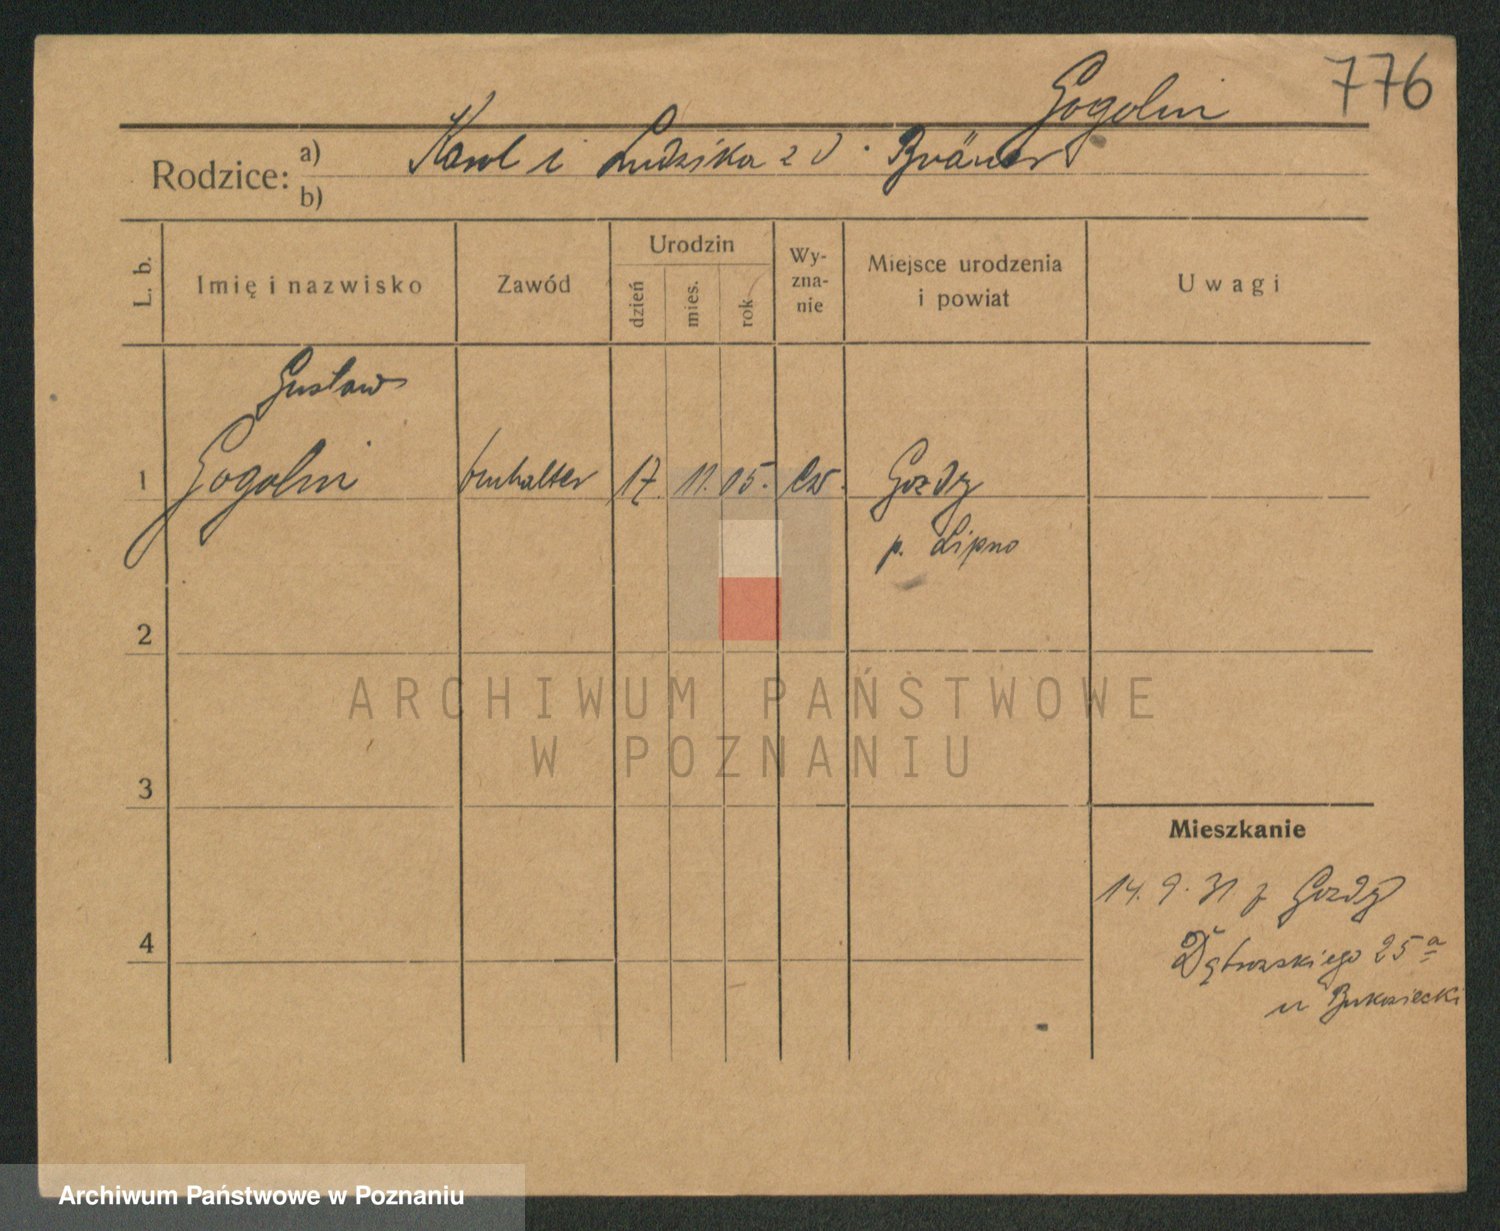 776
Gogolin
Rodzice: a) Karol i Ludwika z d. Bräuer
b)
L. b.
Imię i nazwisko
Zawód
Urodzin
dzień
mies.
rok
Wy-
zna-
nie
Miejsce urodzenia
i powiat
Uwagi
Gustaw
1 Gogolin buchalter 17. 11. 05. Ew. Gozdy
p. Lipno
2
3
4
ARCHIWUM PAŃSTWOWE
W POZNANIU
Mieszkanie
14. 9. 31. z Gozdy
Dąbrowskiego 25a
u
Archiwum Państwowe w Poznaniu